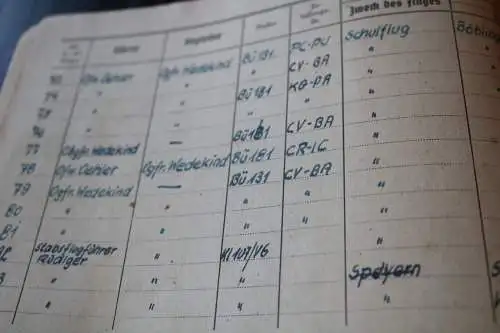 Zweck des Fluges
Ofw. Oehler Ogfr. Wedekind Bü 181 PC-PU Schulflug Böblin
" " " CV-BA "
" " Bü 181 KG-PA "
" " " " "
76 " — " "
77 Ogfr. Wedekind Bü 181 CV-BA "
78 Ofw. Oehler Ogfr. Wedekind Bü 181 CR-IC "
79 Ogfr. Wedekind — Bü 131 CV-BA "
80 " " " " "
81 " " " " "
Stabsflugführer Rüdiger " Kl 107/V6 "
" " " Speyern
" " " "